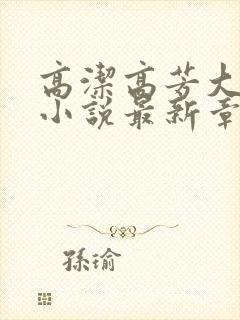 高潔高芳大
小說最新章
孫瑜